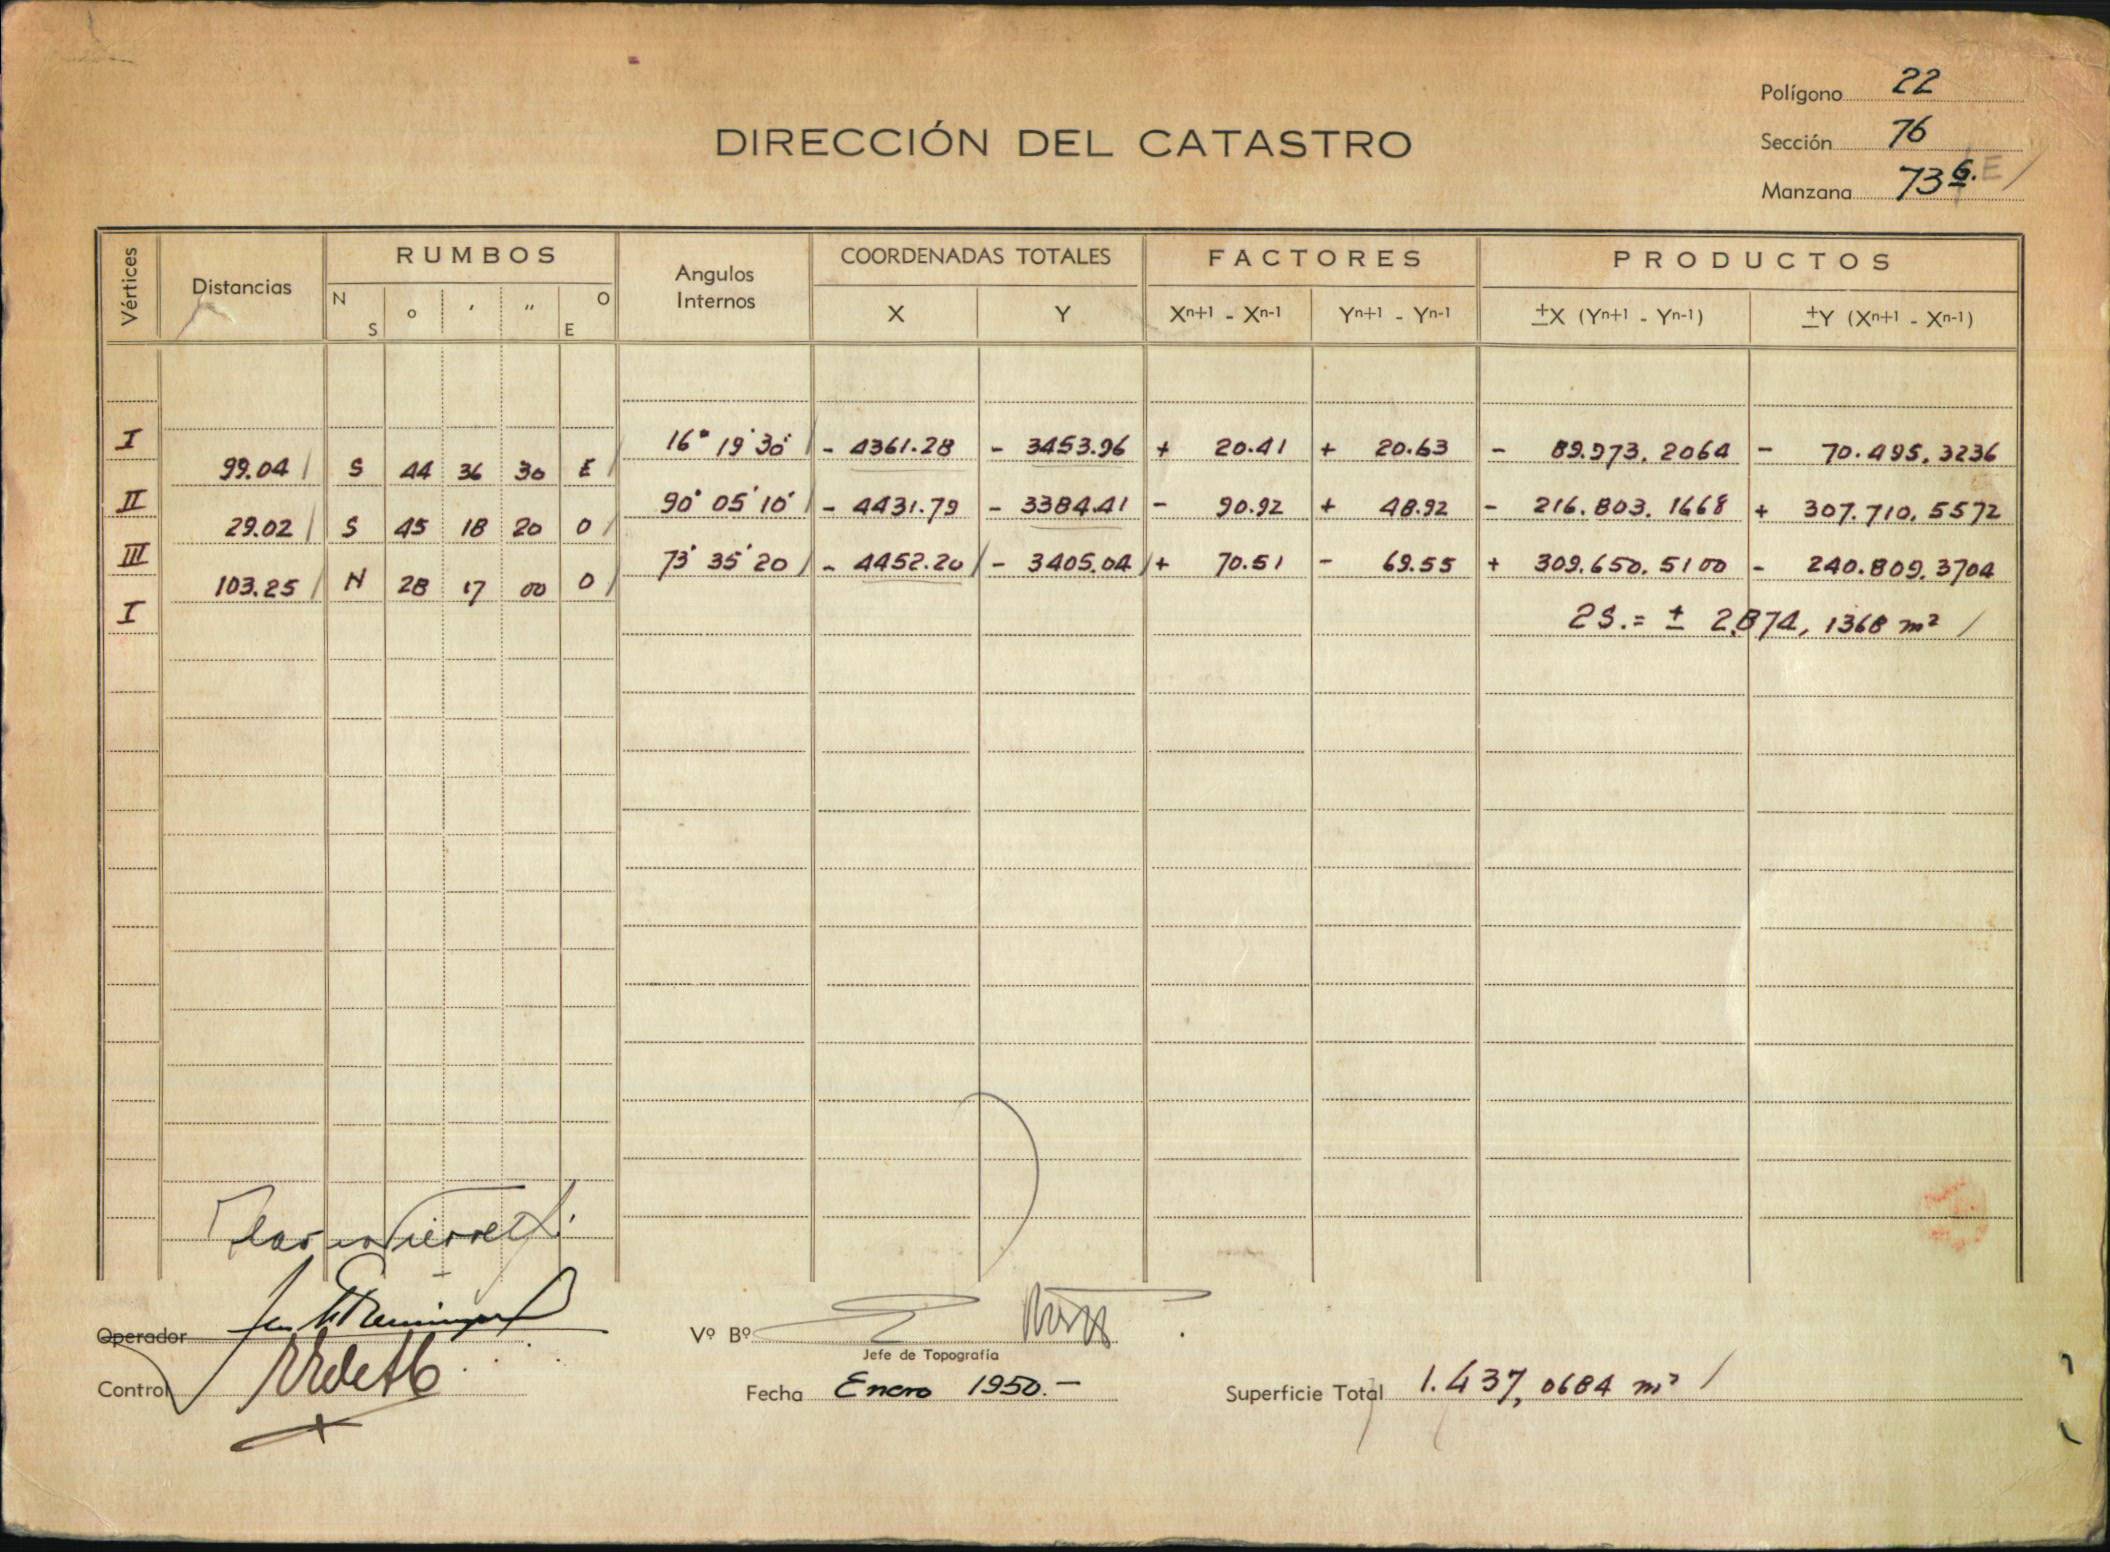 Polígono 22
DIRECCIÓN DEL CATASTRO
Sección 76
Manzana 73 G. E
Vértices Distancias RUMBOS Angulos Internos COORDENADAS TOTALES FACTORES PRODUCTOS
N S ° ' " O E X Y Xn+1 - Xn-1 Yn+1 - Yn-1 ±X (Yn+1 - Yn-1) ±Y (Xn+1 - Xn-1)
I 16° 19' 30" - 4361.28 - 3453.96 + 20.41 + 20.63 - 89.973.2064 - 70.495.3236
99.04 S 44 36 30 E
II 90° 05' 10" - 4431.79 - 3384.41 - 90.92 + 48.92 - 216.803.1668 + 307.710.5572
29.02 S 45 18 20 O
III 73° 35' 20 - 4452.20 - 3405.04 + 70.51 - 69.55 + 309.650.5100 - 240.809.3704
103.25 N 28 17 00 O
I 2S.= ± 2.874,1368 m²
Operador
Vº Bº
Jefe de Topografía
Control
Fecha Enero 1950.-
Superficie Total 1.437,0684 m²